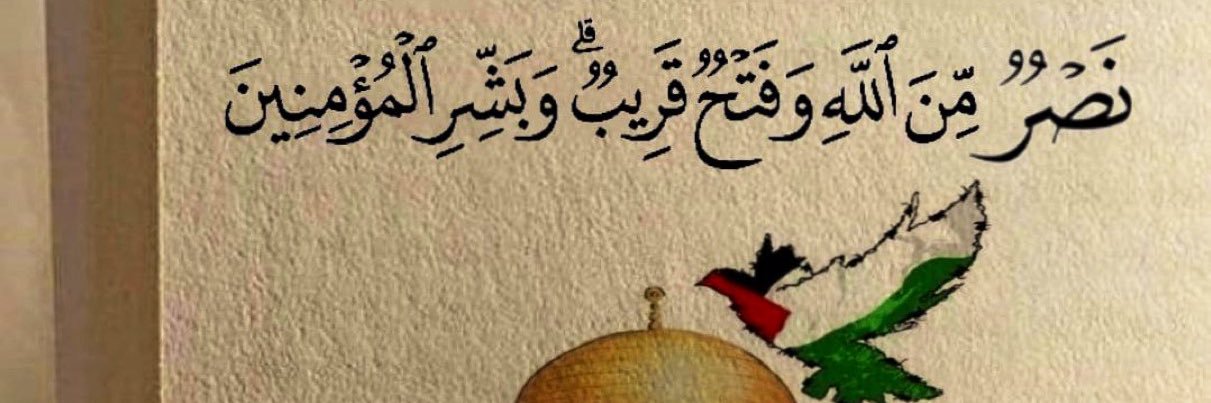 نَصۡرٌ مِّنَ ٱللَّهِ وَفَتۡحٌ قَرِيبٌۗ وَبَشِّرِ ٱلۡمُؤۡمِنِينَ